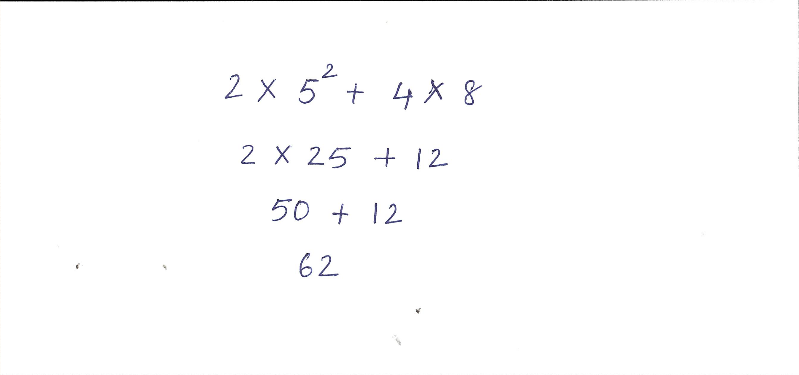 2 × 5² + 4 × 8
2 × 25 + 12
50 + 12
62